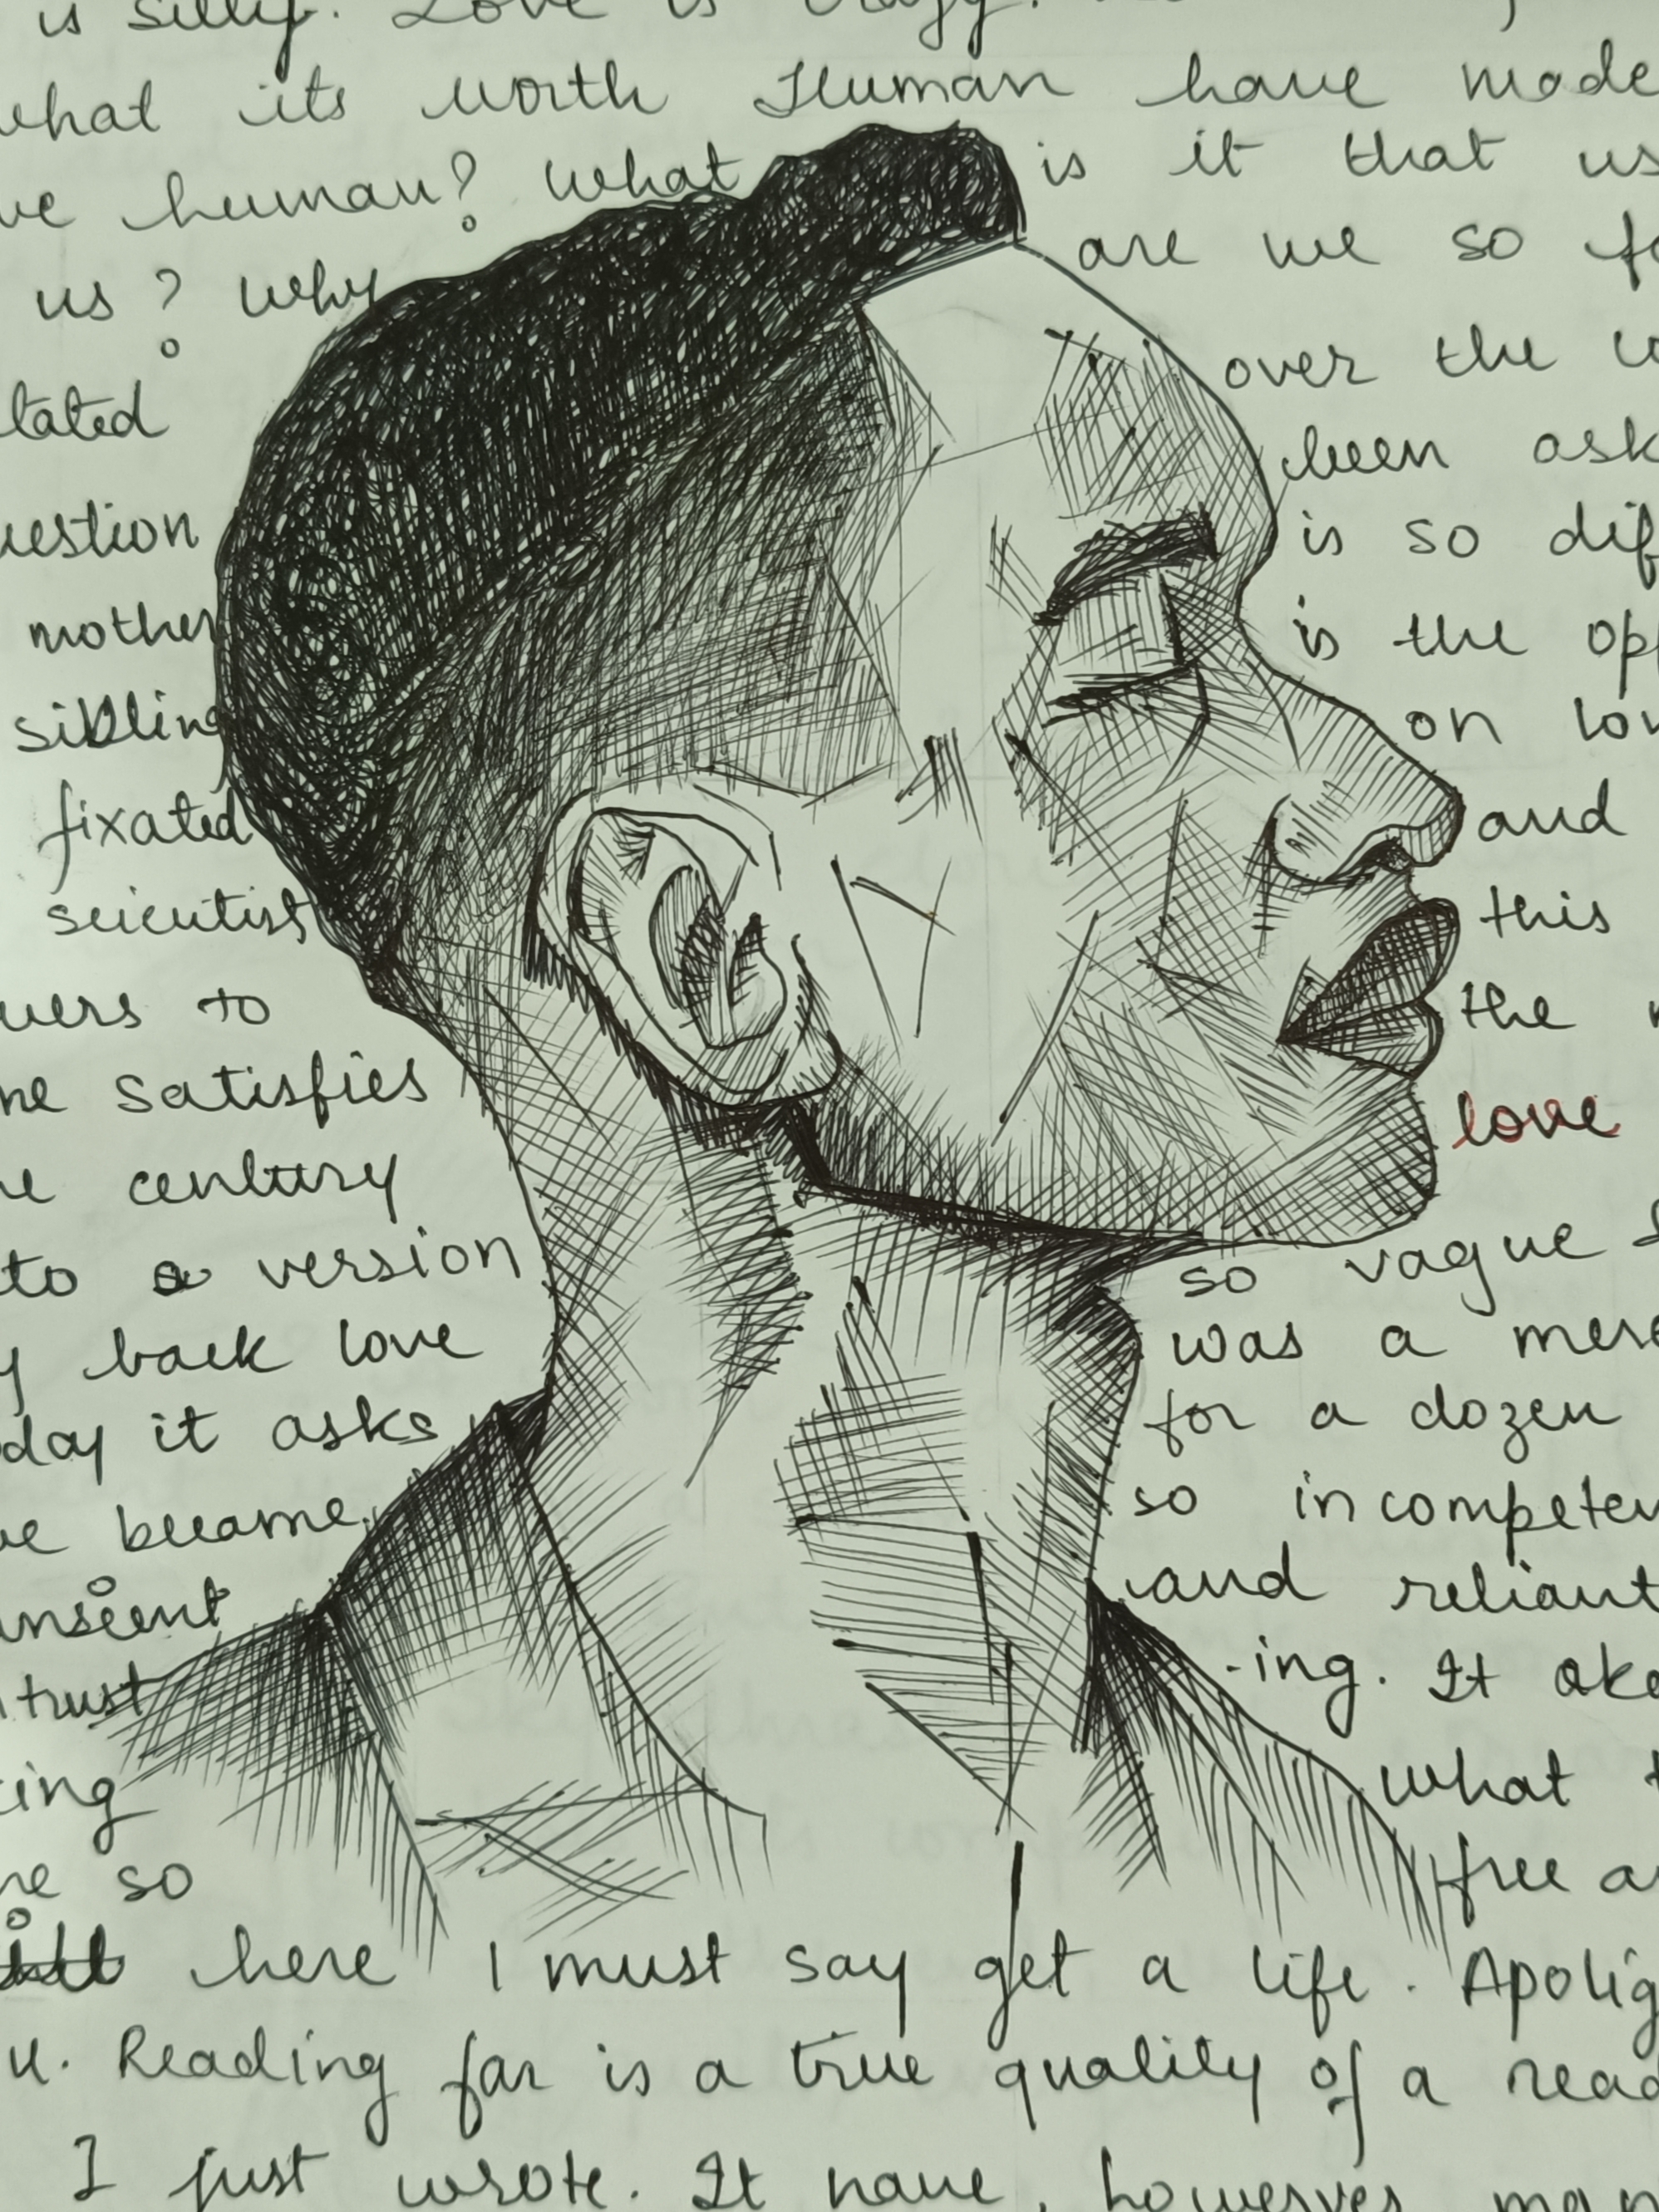 is silly. Love is crazy.
what its worth Human have made
human? What is it that us
us? Why are we so
over the
tated been ask
uestion is so dif
mother is the opp
sibling on lov
fixated and
scientist this
wers to the
me satisfies love
century so vague
to a version was a mere
back love for a dozen
day it asks so incompeten
became and reliant
ansient -ing. It
trust what
king free
so
here I must say get a life. Apolig
u. Reading far is a true quality of a read
I just wrote. It have, howerver man